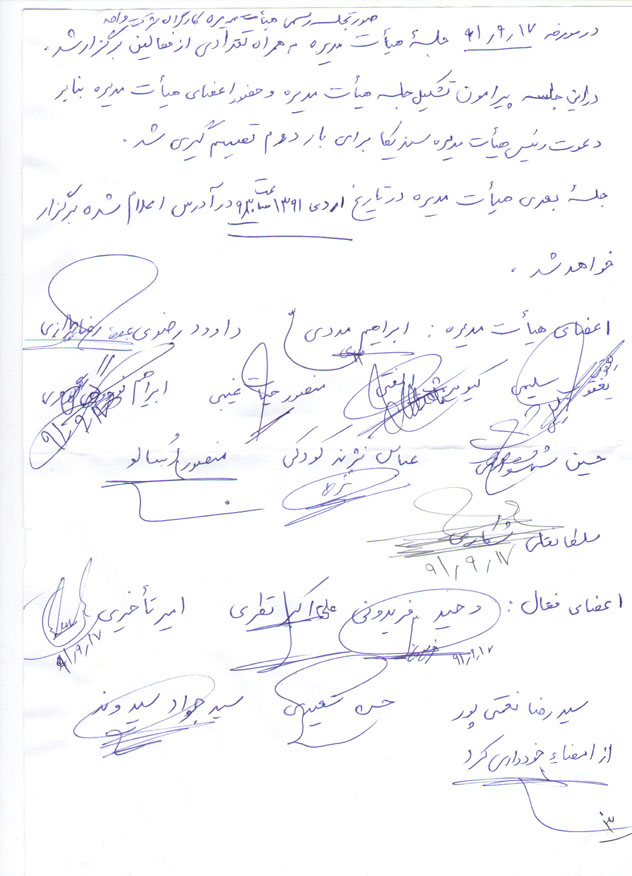 صورتجلسه رسمی هیأت مدیره کارگران شرکت واحد
در مورخه ۹۱/۹/۱۷ جلسهٔ هیأت مدیره به همراه تعدادی از فعالین برگزار شد.
در این جلسه پیرامون تشکیل جلسه هیأت مدیره و حضور اعضای هیأت مدیره بنابر
دعوت رئیس هیأت مدیره سندیکا برای بار دوم تصمیم گیری شد.
جلسهٔ بعدی هیأت مدیره در تاریخ ۱۳۹۱ ساعت در آدرس اعلام شده برگزار
خواهد شد.
اعضای هیأت مدیره: ابراهیم مددی داوود رضوی
یعقوب سلیمی منصور حیات غیبی
حسین عباس نژند کودکی منصور اسالو
سلطانعلی شکاری
۹۱/۹/۱۷
اعضای فعال: وحید فریدونی علی اکبر نظری امیر تأخیری
۹۱/۹/۱۷ ۹۱/۹/۱۷
سید رضا نعمتی پور حسن سعیدی سید جواد سیدوند
از امضاء خودداری کرد
۳